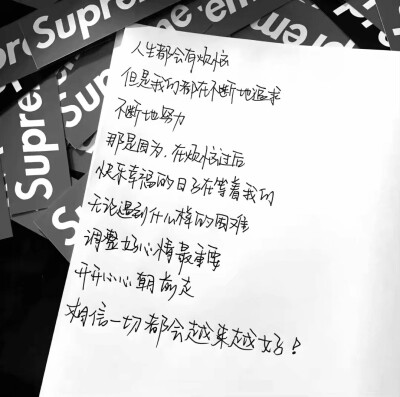 Supreme
Supreme
Supreme
Supreme
人生都会有烦恼
但是我们都在不断地追求
不断地努力
那是因为、在烦恼过后
快乐幸福的日子在等着我们
无论遇到什么样的困难
调整好心情最重要
开开心心朝前走
相信一切都会越来越好!